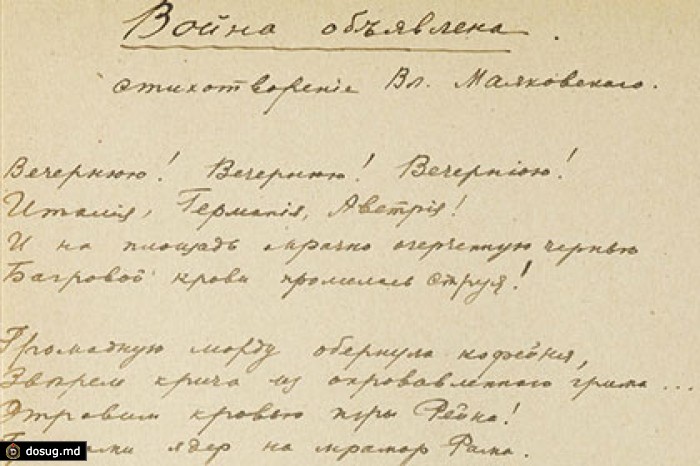 Война объявлена.
стихотвореніе Вл. Маяковскаго.
Вечернюю! Вечернюю! Вечернюю!
Италія, Германія, Австрія!
И на площадь мрачно очерченную чернью
Багровой крови промелась струя!
Громадную морду обернула кофейня,
Звѣрем крича из окровавленного грима ...
Отравим кровью игры Рейна!
ядер на мрамор Рима.
dosug.md